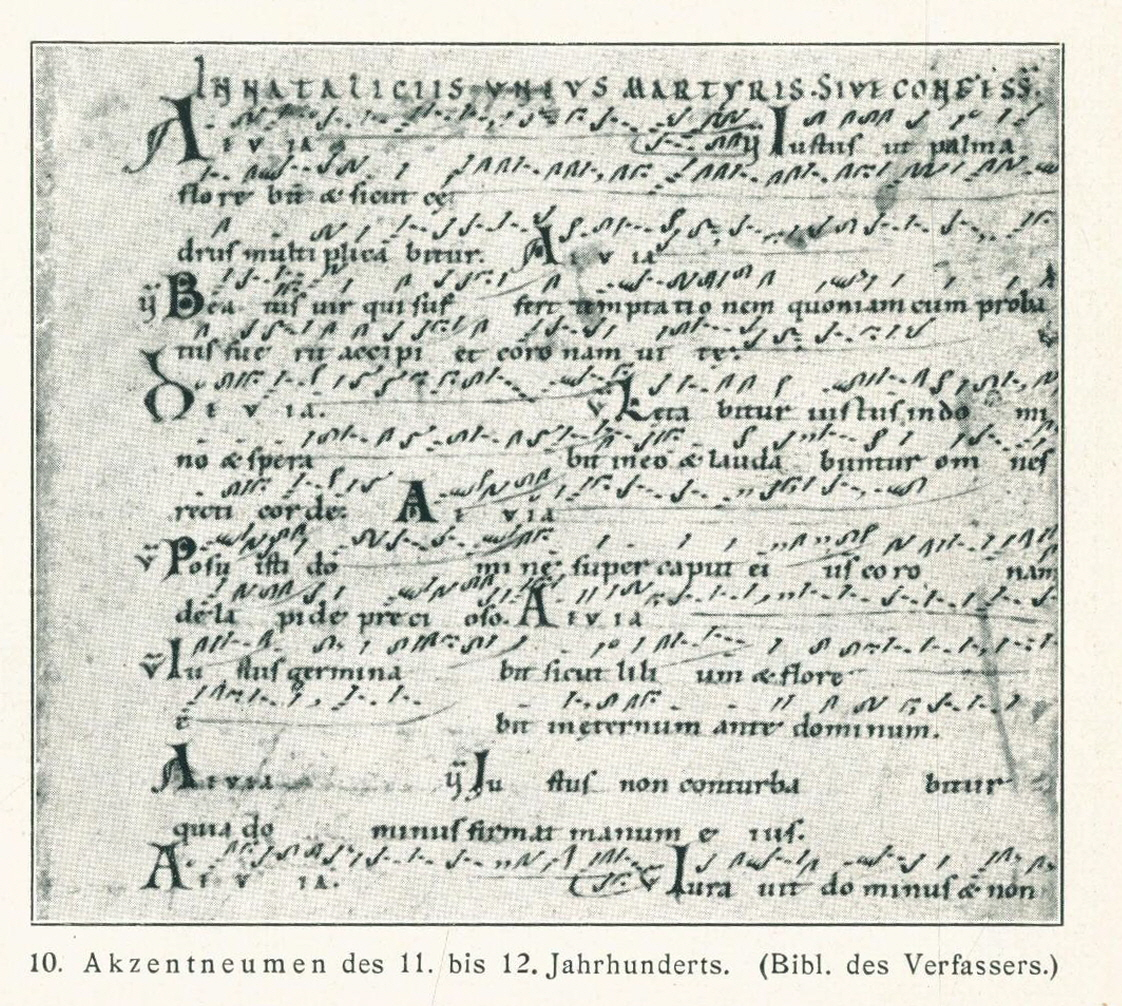 IN NATALICIIS VNIVS MARTYRIS SIVE CONFESS.
A E V IA ÿ Iustus ut palma
flore bit & sicut ce
drus multi plica bitur. A E V IA
ÿ Bea tus uir qui suf fert temptatio nem quoniam cum proba
tus fue rit accipi et coro nam ui te.
A E V IA. v Leta bitur iustus in do mi
no & spera bit in eo & lauda buntur om nes
recti corde: A E VIA
v Posu isti do mi ne super caput ei us coro nam
de la pide preci oso. A E V IA
v Iu stus germina bit sicut lili um & flore
e bit in eternum ante dominum.
A E V IA ÿ Iu stus non conturba bitur
quia do minus firmat manum e ius.
A E V IA. v Iura uit do minus & non
10. Akzentneumen des 11. bis 12. Jahrhunderts. (Bibl. des Verfassers.)